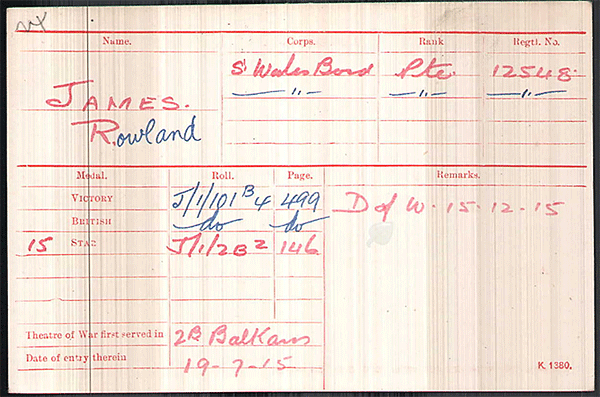 Name. Corps. Rank Regtl. No.
JAMES. S. Wales Bord Pte. 12548.
Rowland —"— —"— —"—
Medal. Roll. Page. Remarks.
VICTORY J/1/101 B 4 499 D of W. 15.12.15
BRITISH do do
15 STAR J/1/2 B 2 146
Theatre of War first served in 2B Balkans
Date of entry therein 19-7-15
K 1380.